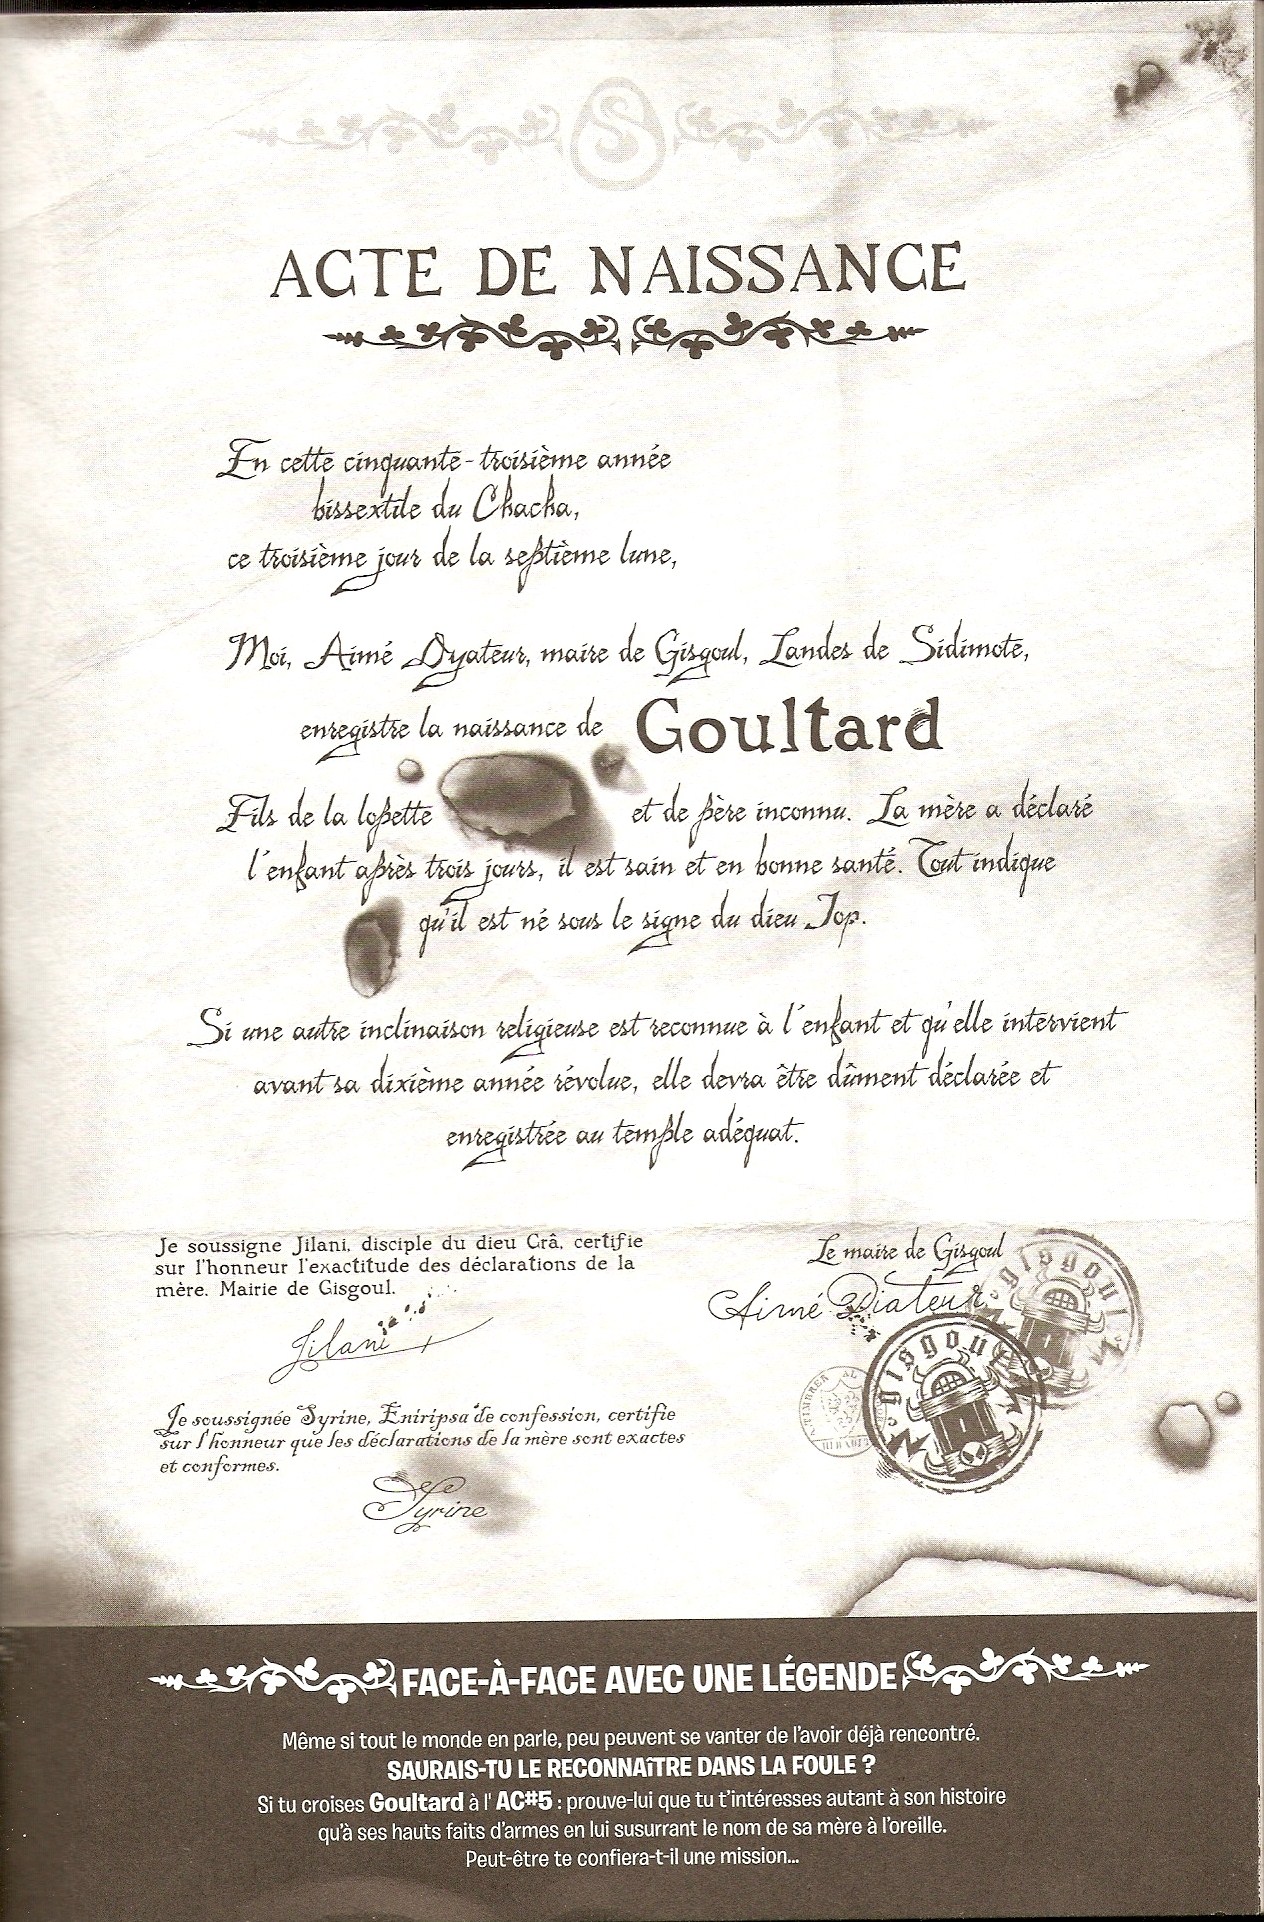 S
ACTE DE NAISSANCE
En cette cinquante-troisième année
bissextile du Chacha,
ce troisième jour de la septième lune,
Moi, Aimé Dyateur, maire de Gisgoul, Landes de Sidimote,
enregistre la naissance de Goultard
Fils de la lopette et de père inconnu. La mère a déclaré
l'enfant après trois jours, il est sain et en bonne santé. Tout indique
qu'il est né sous le signe du dieu Iop.
Si une autre inclinaison religieuse est reconnue à l'enfant et qu'elle intervient
avant sa dixième année révolue, elle devra être dûment déclarée et
enregistrée au temple adéquat.
Je soussigne Jilani, disciple du dieu Crâ, certifie
sur l'honneur l'exactitude des déclarations de la
mère. Mairie de Gisgoul.
Jilani
Je soussignée Syrine, Eniripsa de confession, certifie
sur l'honneur que les déclarations de la mère sont exactes
et conformes.
Syrine
Le maire de Gisgoul
Aimé Diateur
gisgoul
gisgoul
FACE-À-FACE AVEC UNE LÉGENDE
Même si tout le monde en parle, peu peuvent se vanter de l'avoir déjà rencontré.
SAURAIS-TU LE RECONNAÎTRE DANS LA FOULE ?
Si tu croises Goultard à l' AC#5 : prouve-lui que tu t'intéresses autant à son histoire
qu'à ses hauts faits d'armes en lui susurrant le nom de sa mère à l'oreille.
Peut-être te confiera-t-il une mission...